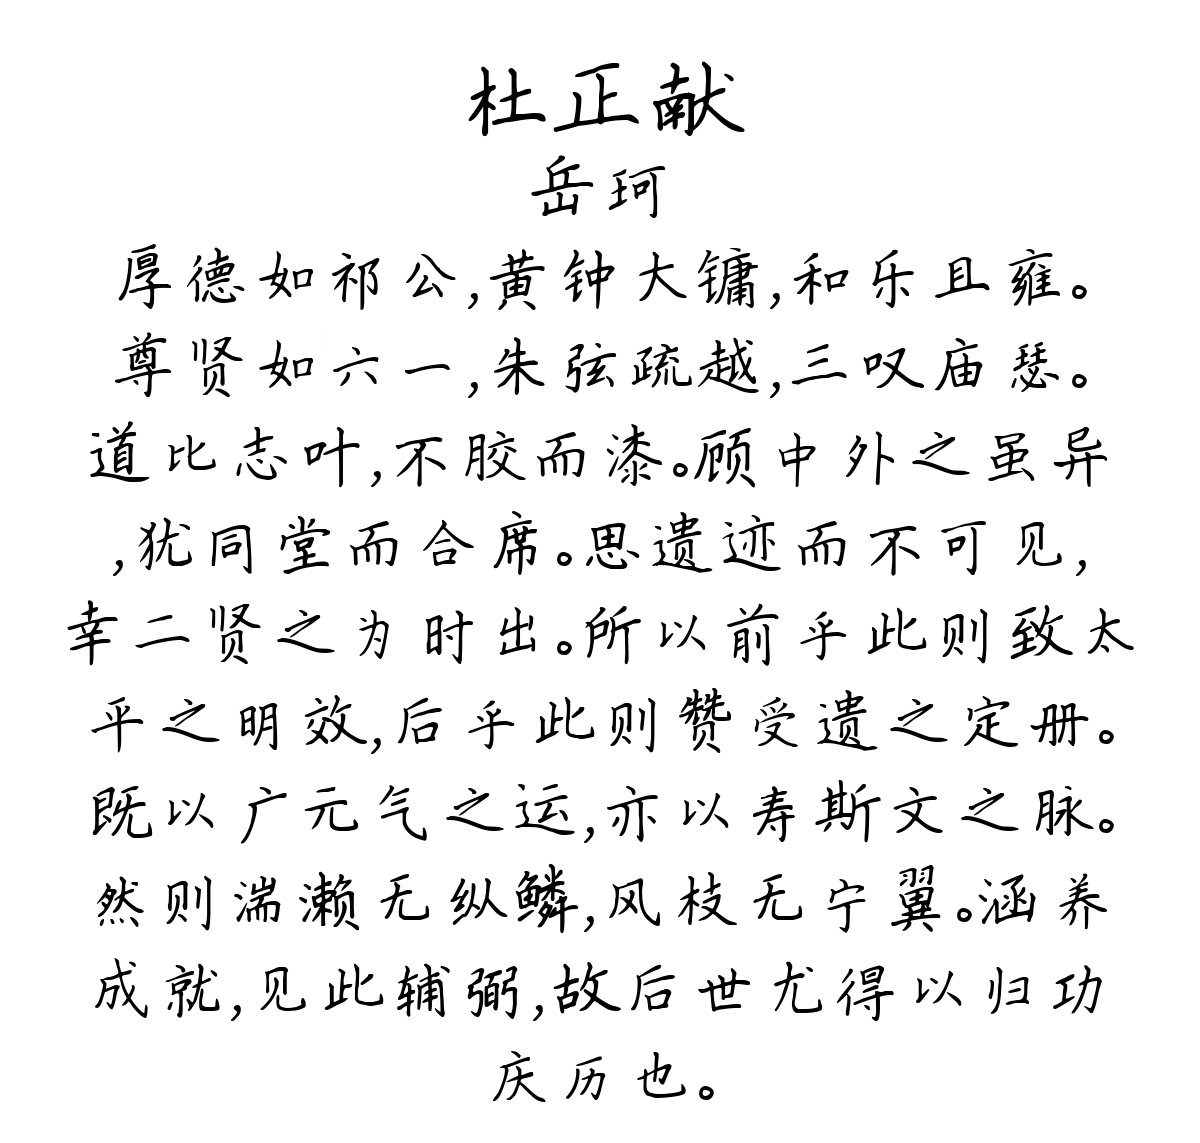 杜正献
岳珂
厚德如祁公,黄钟大镛,和乐且雍。
尊贤如六一,朱弦疏越,三叹庙瑟。
道比志叶,不胶而漆。顾中外之虽异
,犹同堂而合席。思遗迹而不可见,
幸二贤之为时出。所以前乎此则致太
平之明效,后乎此则赞受遗之定册。
既以广元气之运,亦以寿斯文之脉。
然则湍濑无纵鳞,风枝无宁翼。涵养
成就,见此辅弼,故后世尤得以归功
庆历也。